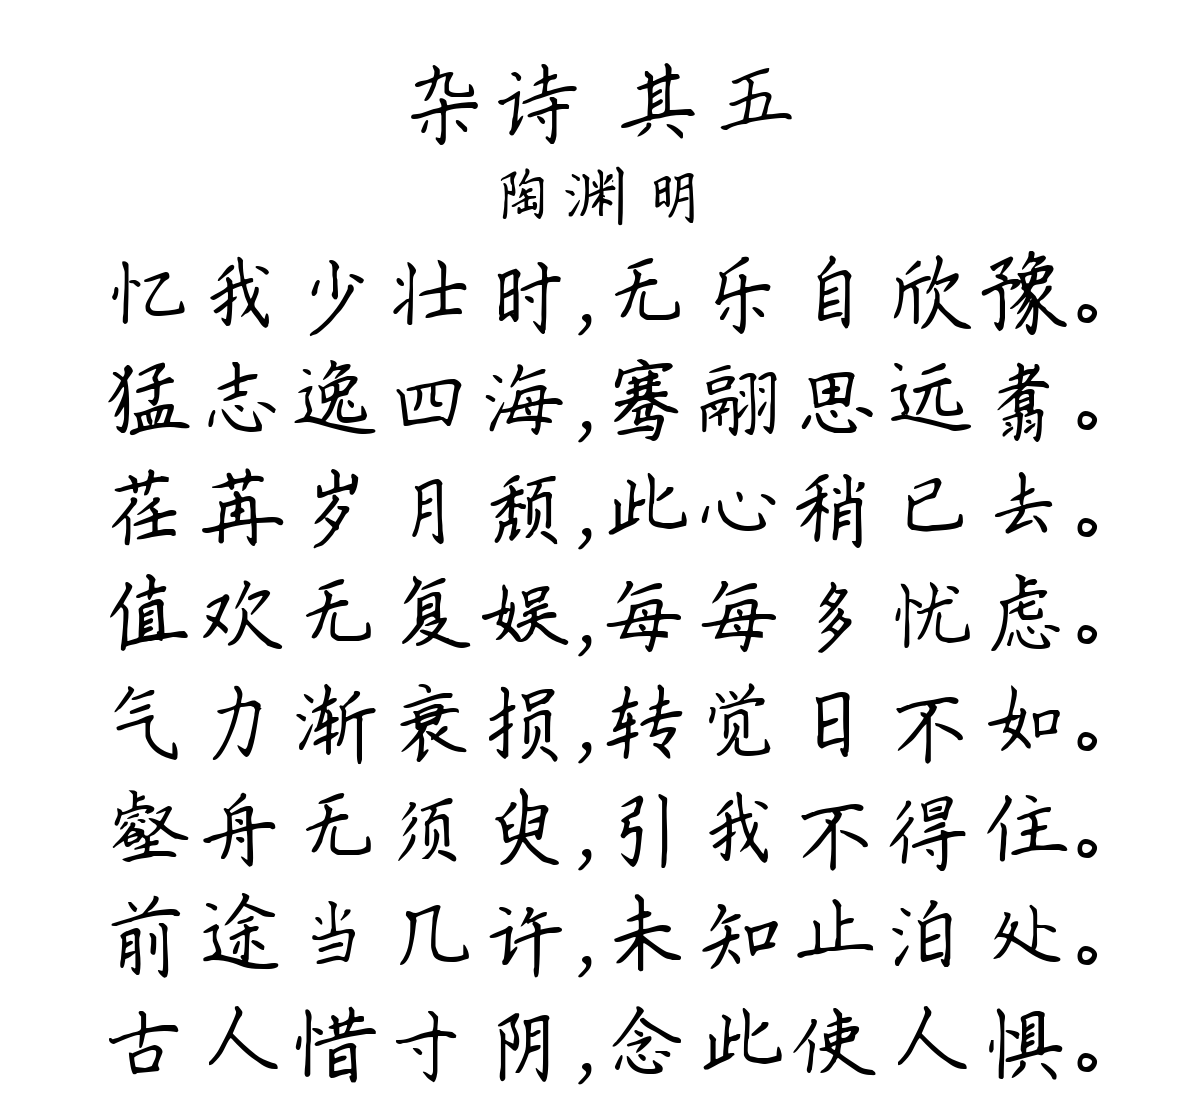 杂诗 其五
陶渊明
忆我少壮时,无乐自欣豫。
猛志逸四海,骞翮思远翥。
荏苒岁月颓,此心稍已去。
值欢无复娱,每每多忧虑。
气力渐衰损,转觉日不如。
壑舟无须臾,引我不得住。
前途当几许,未知止泊处。
古人惜寸阴,念此使人惧。